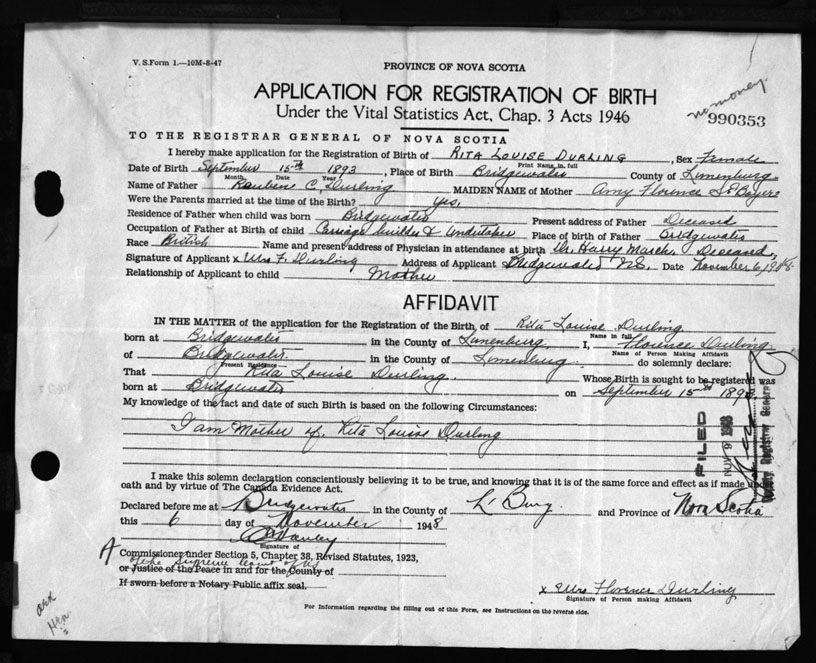 V. S. Form 1.—10M-8-47
PROVINCE OF NOVA SCOTIA
APPLICATION FOR REGISTRATION OF BIRTH
Under the Vital Statistics Act, Chap. 3 Acts 1946
no money.
990353
TO THE REGISTRAR GENERAL OF NOVA SCOTIA
I hereby make application for the Registration of Birth of RITA LOUISE DURLING, Sex Female
Print Name in full
Date of Birth September 15th 1893, Place of Birth Bridgewater County of Lunenburg.
Month Date Year
Name of Father C. Durling MAIDEN NAME of Mother Amy Florence
Were the Parents married at the time of the Birth? Yes,
Residence of Father when child was born Bridgewater Present address of Father Deceased
Occupation of Father at Birth of child Carriage builder & Undertaker Place of birth of Father Bridgewater
Race British Name and present address of Physician in attendance at birth Dr. Harry March, Deceased,
Signature of Applicant x Mrs F. Durling Address of Applicant Bridgewater N.S. Date November 6, 1948.
Relationship of Applicant to child Mother
AFFIDAVIT
IN THE MATTER of the application for the Registration of the Birth, of Rita Louise Durling
Name in full
born at Bridgewater in the County of Lunenburg. I, Florence Durling.
Name of Person Making Affidavit
of Bridgewater. in the County of Lunenburg do solemnly declare:
Present Residence
That Rita Louise Durling. Whose Birth is sought to be registered was
born at Bridgewater on September 15th 1893.
My knowledge of the fact and date of such Birth is based on the following Circumstances:
I am Mother of Rita Louise Durling
FILED
NOV 9 1948
Deputy Registrar General
I make this solemn declaration conscientiously believing it to be true, and knowing that it is of the same force and effect as if made under
oath and by virtue of The Canada Evidence Act.
Declared before me at Bridgewater in the County of L'Burg and Province of Nova Scotia
this 6 day of November 1948
Signature of
A Commissioner under Section 5, Chapter 38, Revised Statutes, 1923,
of the Supreme Court of NS
or Justice of the Peace in and for the County of
If sworn before a Notary Public affix seal.
x Mrs Florence Durling
Signature of Person making Affidavit
For Information regarding the filling out of this Form, see Instructions on the reverse side.